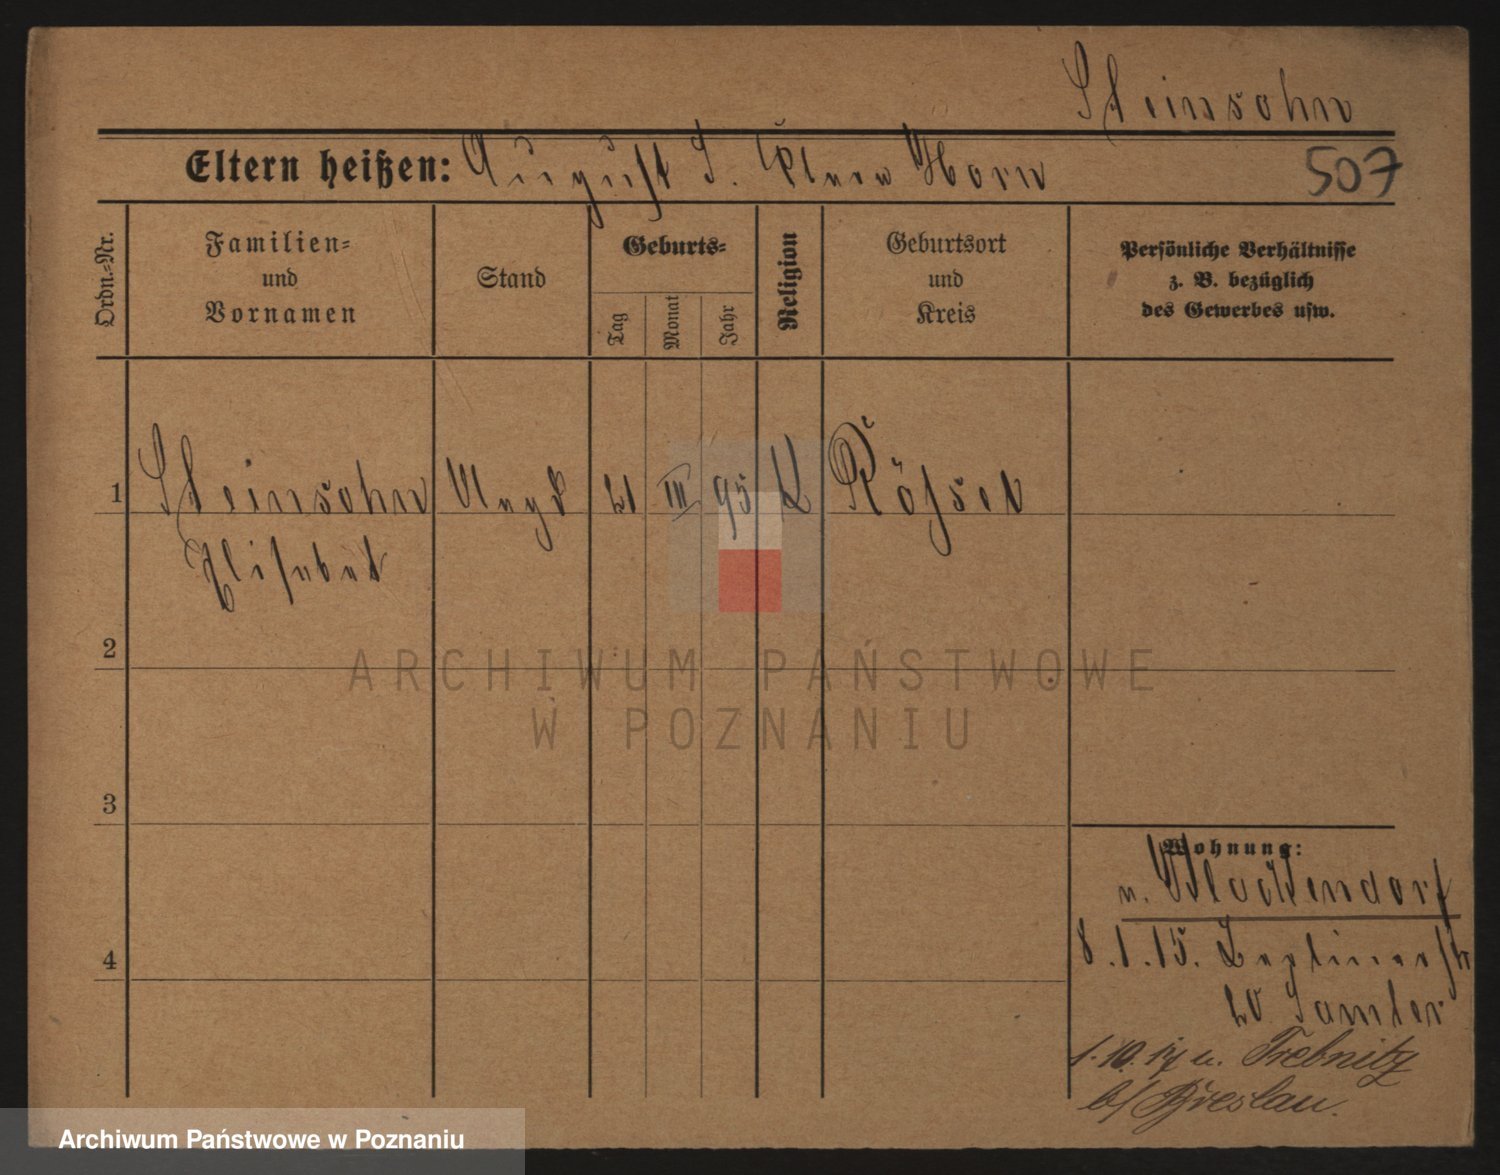 Steinsohn
Eltern heißen: August S. Horn
507
Ordn.=Nr.
Familien=
und
Vornamen
Stand
Geburts=
Tag
Monat
Jahr
Religion
Geburtsort
und
Kreis
Persönliche Verhältnisse
z. B. bezüglich
des Gewerbes usw.
1 Steinsohn Magd 21 III 95 Rössel
Elisabet
2
ARCHIWUM PAŃSTWOWE
W POZNANIU
3
Wohnung:
4
8.1.15. Berlinerstr
20
1.10.17 n. Trebnitz
b/ Breslau.
Archiwum Państwowe w Poznaniu